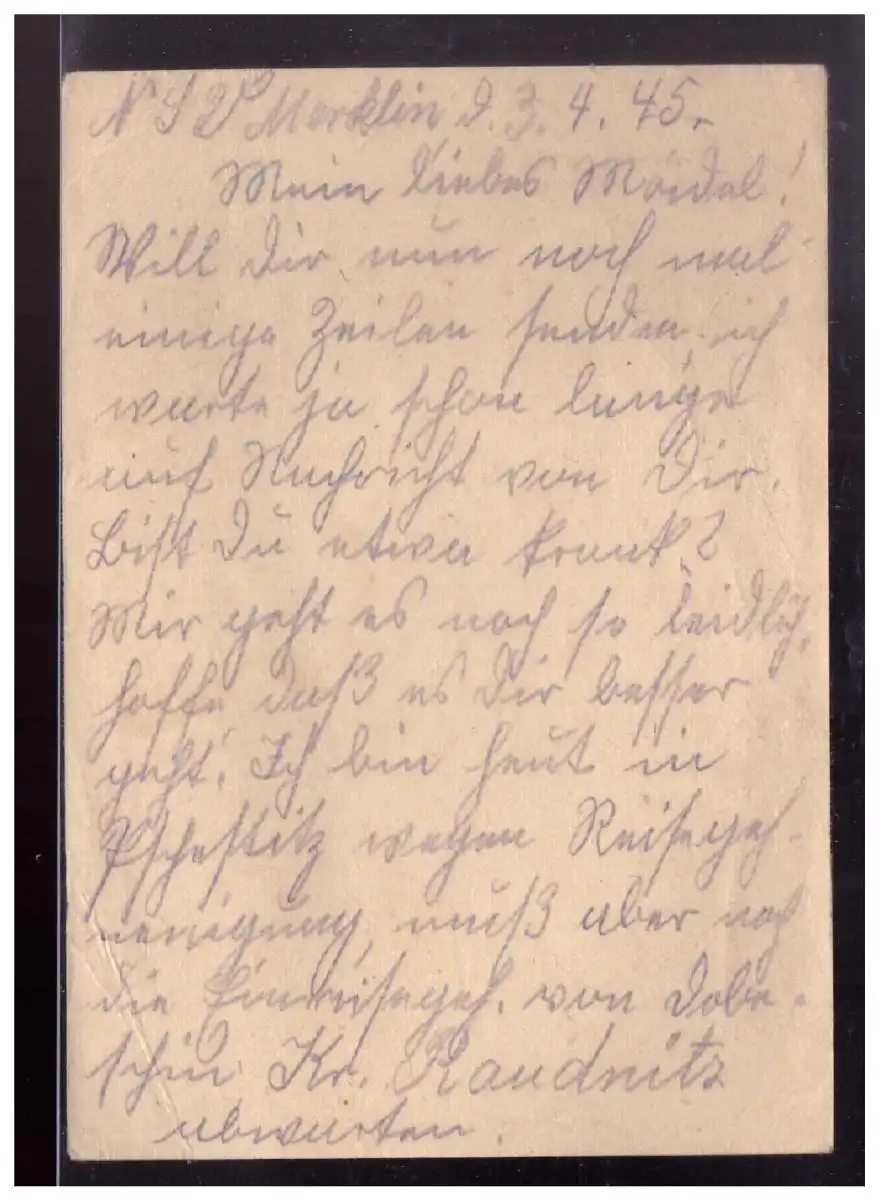 NSV Merklin d. 3. 4. 45.
Mein liebes Mädel!
Will dir nun noch mal
einige Zeilen senden, ich
warte ja schon lange
auf Nachricht von Dir.
Bist Du etwa krank?
Mir geht es noch so leidlich,
hoffe, daß es Dir besser
geht. Ich bin heut in
Pschestitz wegen Reisegeh-
nemigung, muß aber noch
die Einreisegeh. von Dobe-
schin Kr. Raudnitz
abwarten.